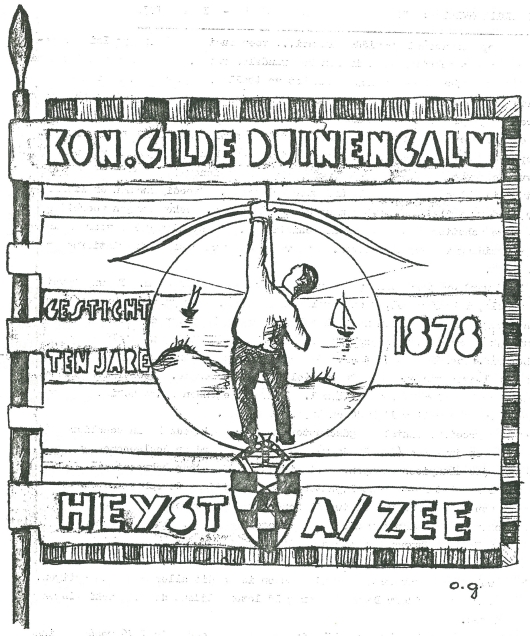 KON. GILDE DUINENGALM
GESTICHT
TEN JARE
1878
HEYST A/ZEE
o.g.